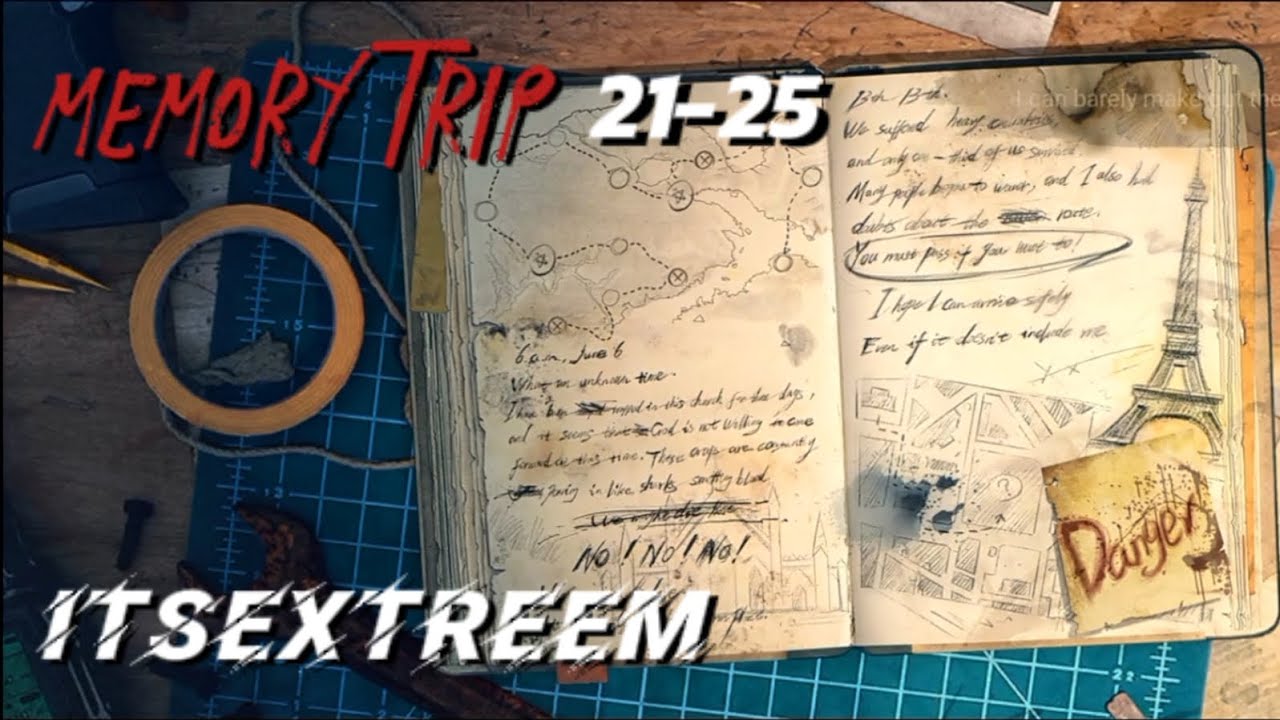 MEMORY TRIP 21-25
I can barely make out the
13th
We suffered heavy
and only one-third of us survived.
Many people began to waver, and I also had
doubts about the route.
You must pass if you want to!
I hope I can arrive safely
Even if it doesn't include me
6 a.m., June 6
What an unknown time.
I have been in this church for three days,
and it seems that God is not willing to come
forward at this time. These are constantly
in like sharks smelling blood
No! No! No!
?
Danger
15
13
22
ITSEXTREEM